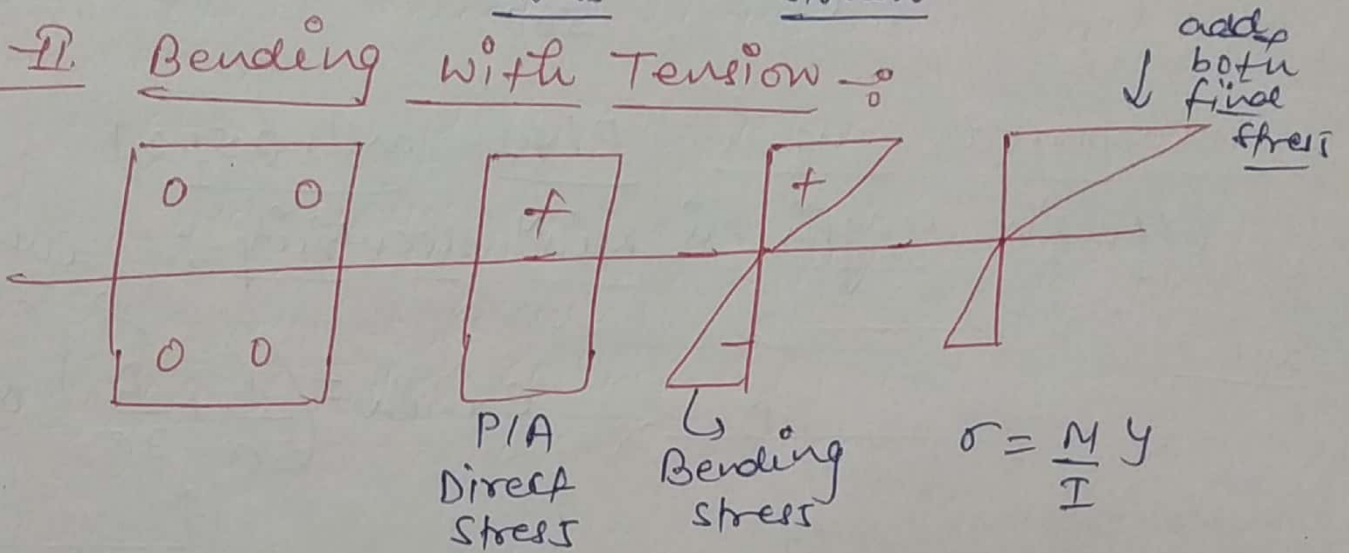 II. Bending with Tension :-
add
both
final
stress
+
+
-
P/A
Direct
Stress
Bending
stress
σ = M/I y